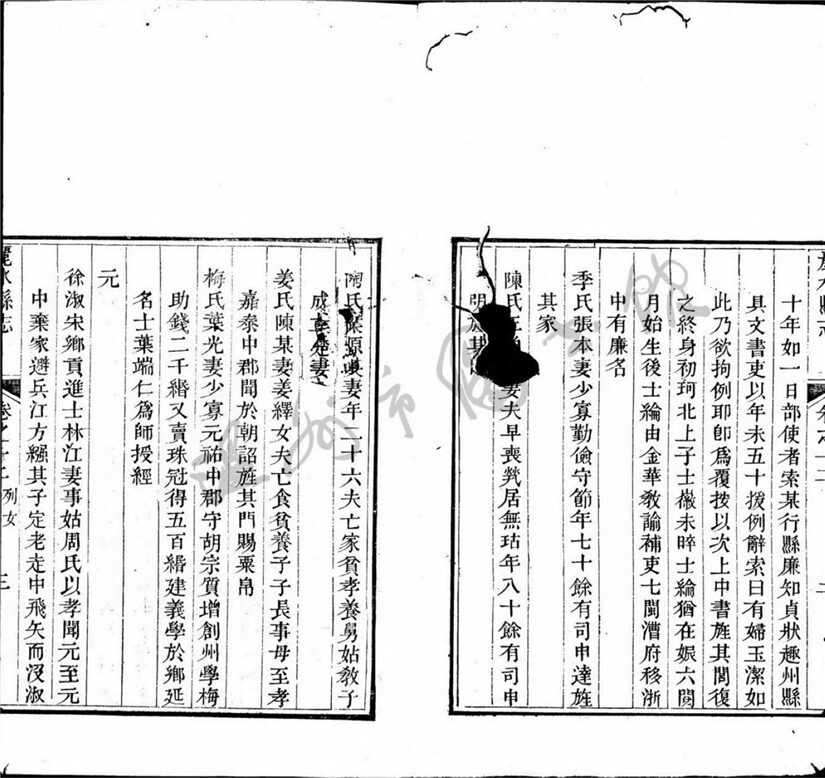 十年如一日部使者索某行縣廉知貞狀趣州縣
具文書吏以年未五十援例辭索曰有婦玉潔如
此乃欲拘例耶卽爲覆按以次上中書旌其閭復
之終身初珂北上子士巖未晬士綸猶在娠六閱
月始生後士綸由金華敎諭補吏七閩漕府移浙
中有廉名
季氏張本妻少寡勤儉守節年七十餘有司申達旌
其家
陳氏 妻夫早喪煢居無玷年八十餘有司申
明旌其
陶氏 妻年二十六夫亡家貧孝養舅姑敎子
成
姜氏陳某妻姜繹女夫亡食貧養子子長事母至孝
嘉泰中郡聞於朝詔旌其門賜粟帛
梅氏葉光妻少寡元祐中郡守胡宗質增創州學梅
助錢二千緡又賣珠冠得五百緡建義學於鄉延
名士葉端仁爲師授經
元
徐淑宋鄉貢進士林江妻事姑周氏以孝聞元至元
中棄家避兵江方繦其子定老走中飛矢而沒淑
麗水縣志 卷之十二 列女 三